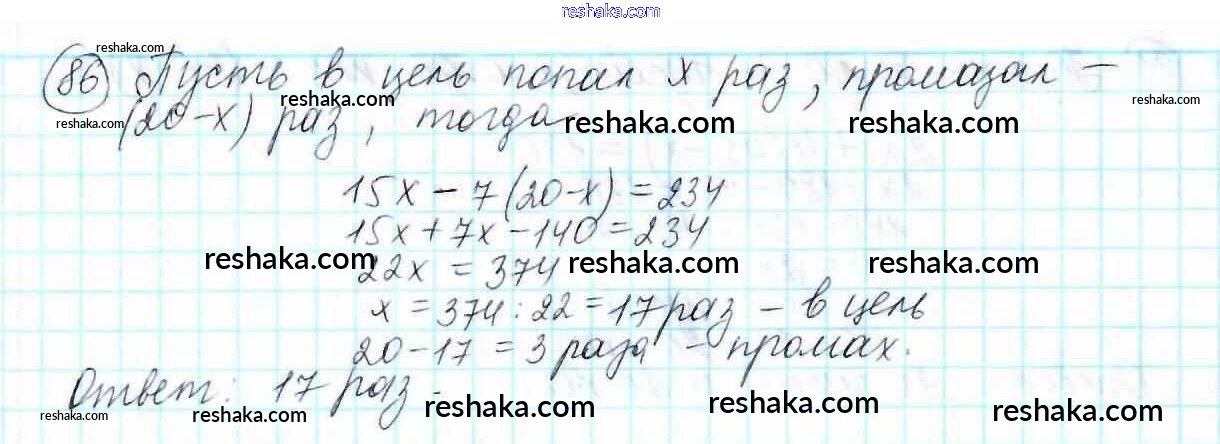 reshaka.com
86 Пусть в цель попал x раз, промазал —
reshaka.com
reshaka.com
reshaka.com
(20-x) раз, тогда
reshaka.com
reshaka.com
reshaka.com
15x - 7(20-x) = 234
15x + 7x - 140 = 234
reshaka.com
reshaka.com
reshaka.com
22x = 374
x = 374 : 22 = 17 раз - в цель
20 - 17 = 3 раза - промах.
Ответ: 17 раз.
reshaka.com
reshaka.com
reshaka.com
reshaka.com
reshaka.com